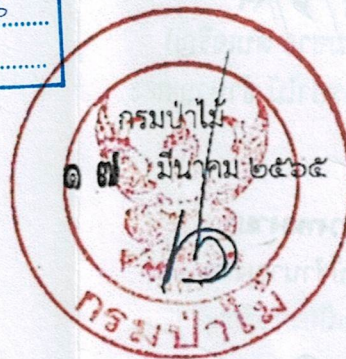 กรมป่าไม้
๑๗ มีนาคม ๒๕๖๕
กรมป่าไม้